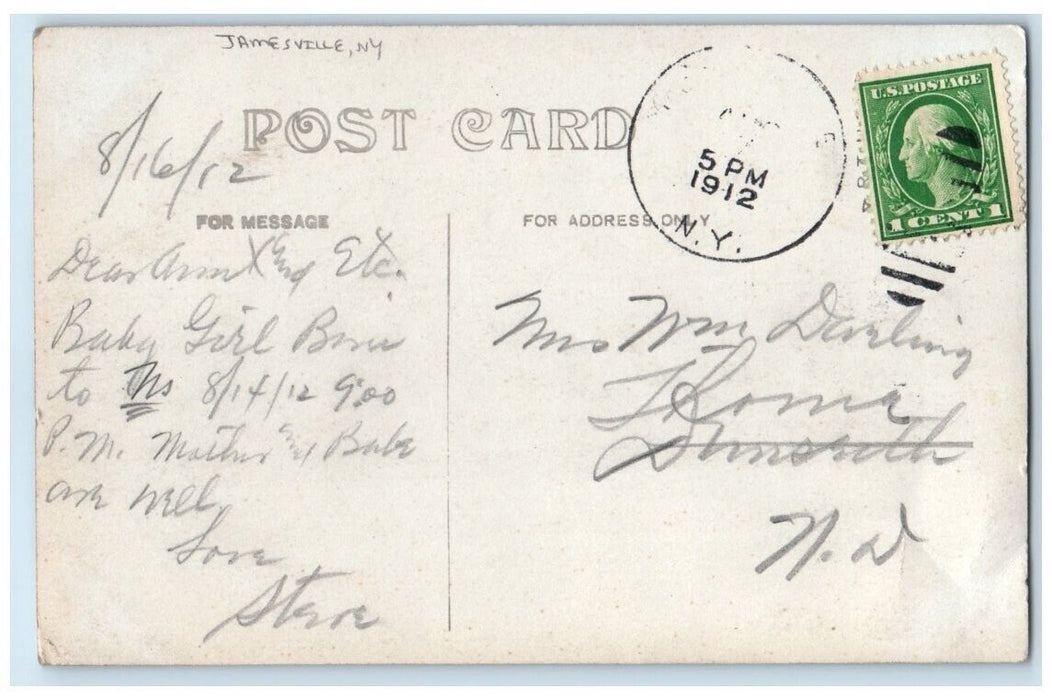 JAMESVILLE, NY
POST CARD
8/16/12
5 PM
1912
N.Y.
U.S. POSTAGE
1 CENT 1
FOR MESSAGE
FOR ADDRESS ONLY
Dear and Etc.
Baby Girl Born
to Us 8/14/12 9:00
P.M. Mother and Babe
are well
Love
Steve
Mrs Wm Darling
Thorne
Dunseith
N. D